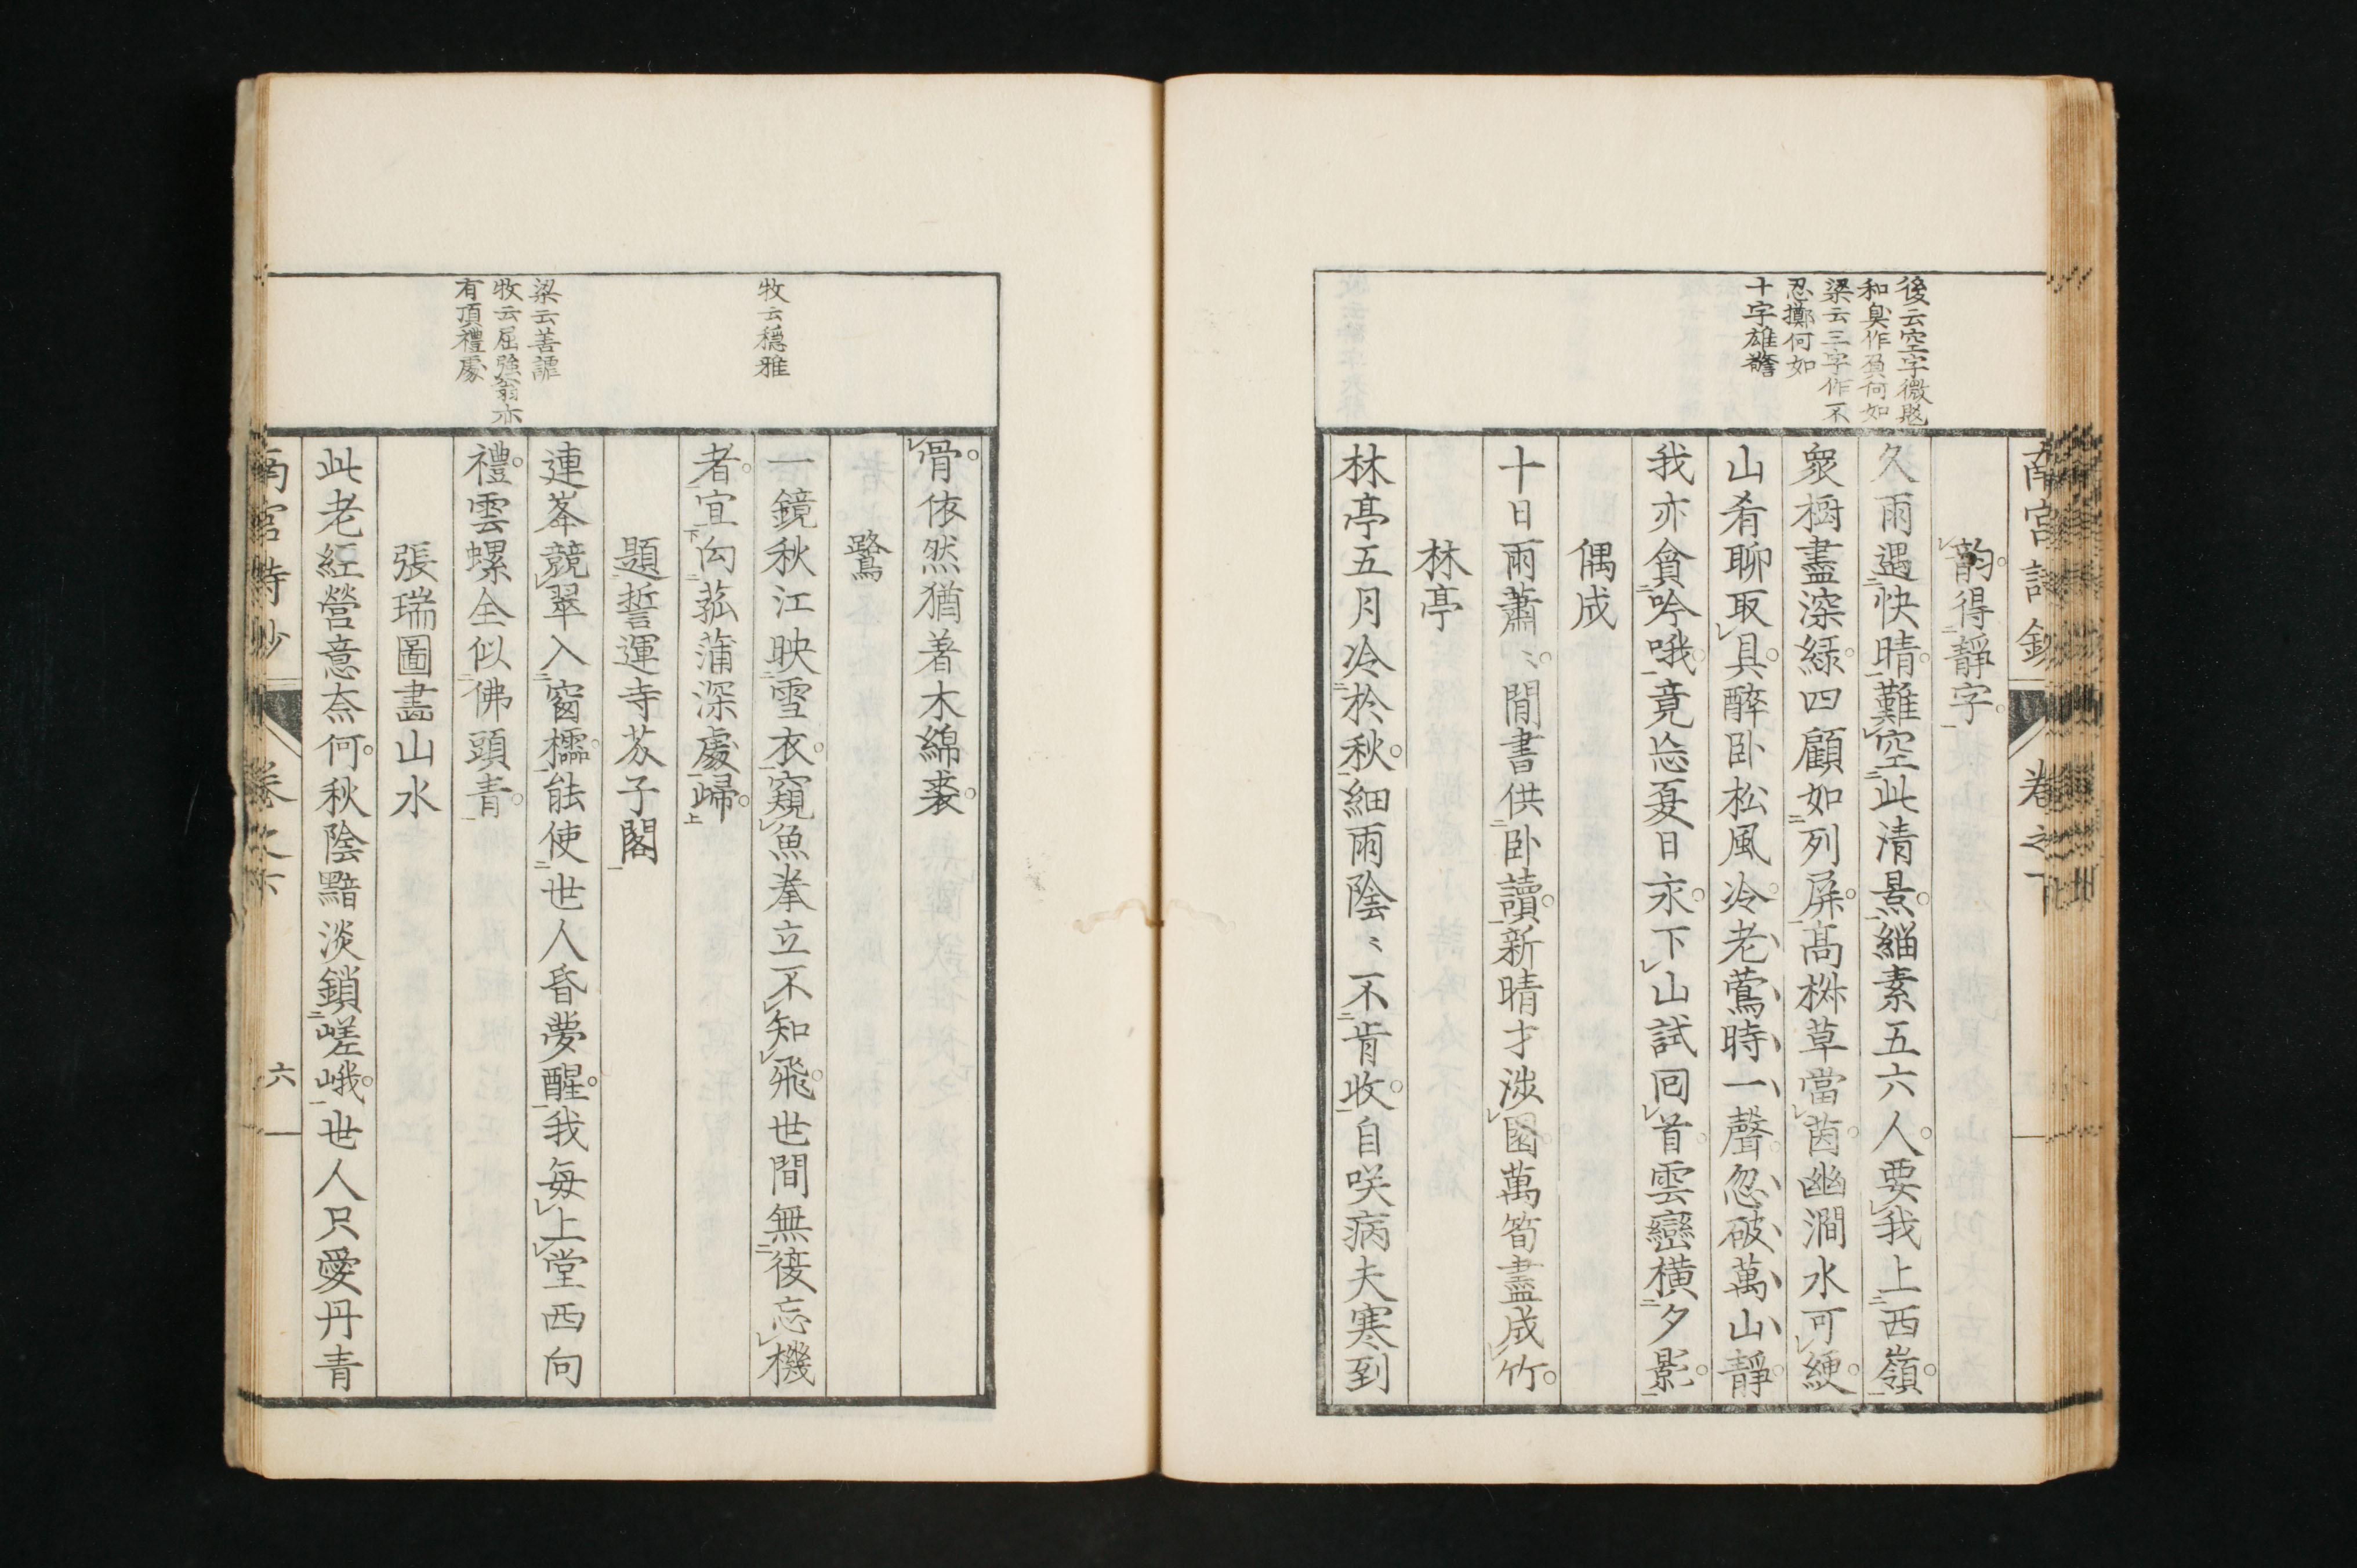 南宮詩鈔 卷之下
後云空字微尫
和臭作負何如
梁云三字作不
忍擲何如
十字雄警
韵得靜字
久雨遇快晴難空此清景緇素五六人要我上西嶺
衆樹盡深綠四顧如列屏高栟草當茵幽澗水可綆
山肴聊取具醉卧松風冷老鶯時一聲忽破萬山靜
我亦貪吟哦竟忘夏日永下山試回首雲巒橫夕影
偶成
十日雨蕭〻閒書供卧讀新晴才涉園萬筍盡成竹
林亭
林亭五月冷於秋細雨陰〻不肯收自咲病夫寒到
牧云穩雅
梁云善謔
牧云屈強翁亦
有頂禮處
骨依然猶著木綿裘
鷺
一鏡秋江映雪衣窺魚拳立不知飛世間無復忘機
者宜向菰蒲深處歸
題誓運寺芥子閣
連峯競翠入窗櫺能使世人昏夢醒我每上堂西向
禮雲螺全似佛頭青
張瑞圖畫山水
此老經營意奈何秋陰黯淡鎖嵯峨世人只愛丹青
南宮詩鈔 卷之下 六